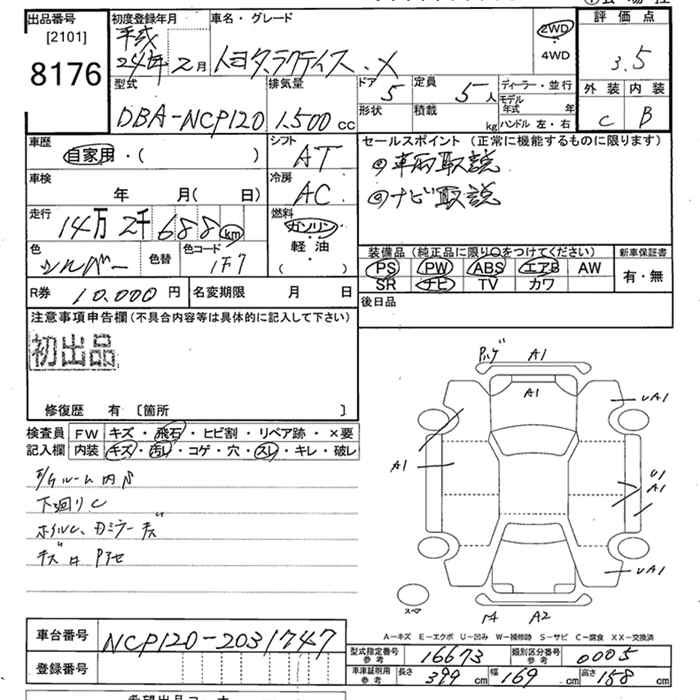 出品番号
[2101]
8176
初度登録年月
平成
24年 2月
車名・グレード
トヨタ ラクティス . X
2WD
4WD
評価点
3.5
外装 内装
C B
型式
DBA-NCP120
排気量
1.500 CC
ドア
5
定員
5人
形状
積載
kg
ディーラー・並行
モデル年式 年
ハンドル 左・右
車歴
自家用・( )
シフト
AT
車検
年 月( 日)
冷房
AC
走行
14万 2千 688 km
燃料
ガソリン
軽油
( )
色
シルバー
色替
色コード
1F7
セールスポイント(正常に機能するものに限ります)
車両取説
ナビ取説
装備品(純正品に限り〇をつけてください)
新車保証書
PS PW ABS エアB AW
SR ナビ TV カワ
有・無
R券 10.000円
名変期限 月 日
後日品
注意事項申告欄(不具合内容等は具体的に記入して下さい)
初出品
修復歴 有 〔箇所 〕
検査員
記入欄
FW キズ・飛石・ヒビ割・リペア跡・×要
内装 キズ・汚レ・コゲ・穴・スレ・キレ・破レ
下廻りC
キズ
A1
A1
UA1
A1
U1
A1
UA1
スペア
A2
A-キズ E-エクボ U-凹み W-補修跡 S-サビ C-腐食 XX-交換済
車台番号
NCP120-2031747
登録番号
型式指定番号
参考
16673
類別区分番号
参考
0005
車庫証明用
参考
長さ 399 cm 幅 169 cm 高さ 158 cm